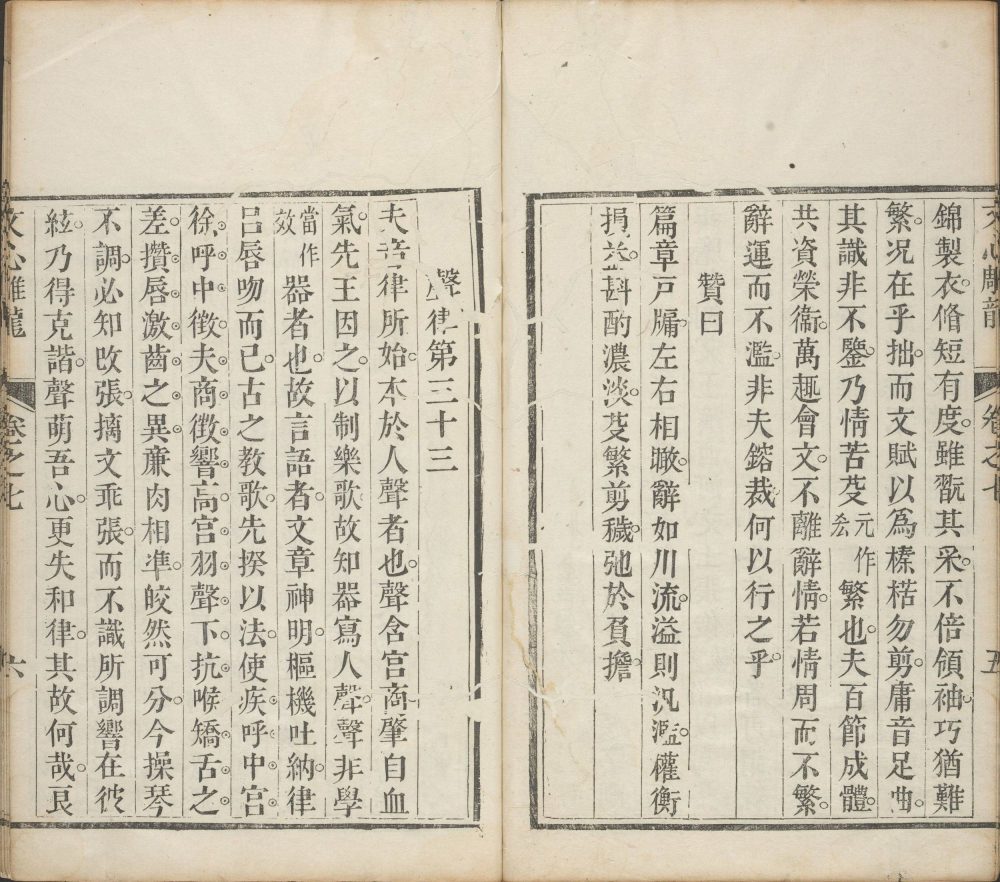 文心雕龍 卷之七 五
錦製衣脩短有度雖翫其采不倍領袖巧猶難
繁况在乎拙而文賦以爲榛楛勿剪庸音足曲
其識非不鑒乃情苦芟元作𠫤繁也夫百節成體
共資榮衞萬趣會文不離辭情若情周而不繁
辭運而不濫非夫鎔裁何以行之乎
贊曰
篇章戸牖左右相瞰辭如川流溢則汎濫權衡
損益斟酌濃淡芟繁剪穢弛於負擔
聲律第三十三
夫音律所始本於人聲者也聲含宮商肇自血
氣先王因之以制樂歌故知器寫人聲聲非學
當作效器者也故言語者文章神明樞機吐納律
吕唇吻而已古之教歌先揆以法使疾呼中宮
徐呼中徴夫商徴響高宮羽聲下抗喉矯舌之
差攢唇激齒之異亷肉相凖皎然可分今操琴
不調必知改張摛文乖張而不識所調響在彼
絃乃得克諧聲萌吾心更失和律其故何哉良
文心雕龍 卷之七 六